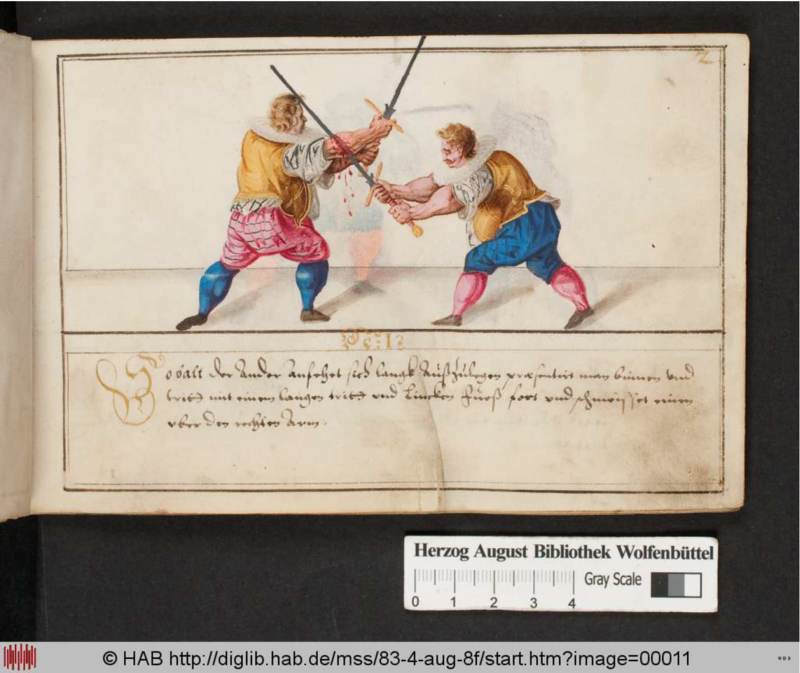 2
So balt der Ander anfehet sich langk Außzulegen præsentirt man binnen vnd
tritt mit einem langen tritt vnd Lincken Fueß fort vnd schmeisset einen
vber den rechten Arm.
Herzog August Bibliothek Wolfenbüttel
Gray Scale
0 1 2 3 4
© HAB http://diglib.hab.de/mss/83-4-aug-8f/start.htm?image=00011